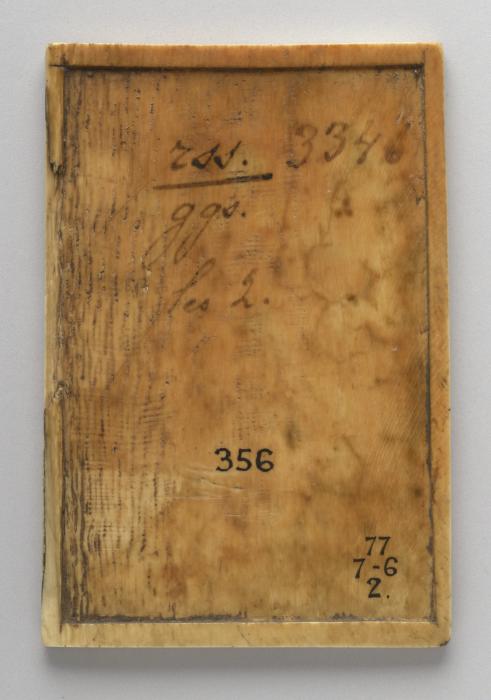 rss. 3346
ggs.
les 2.
356
77
7-6
2.